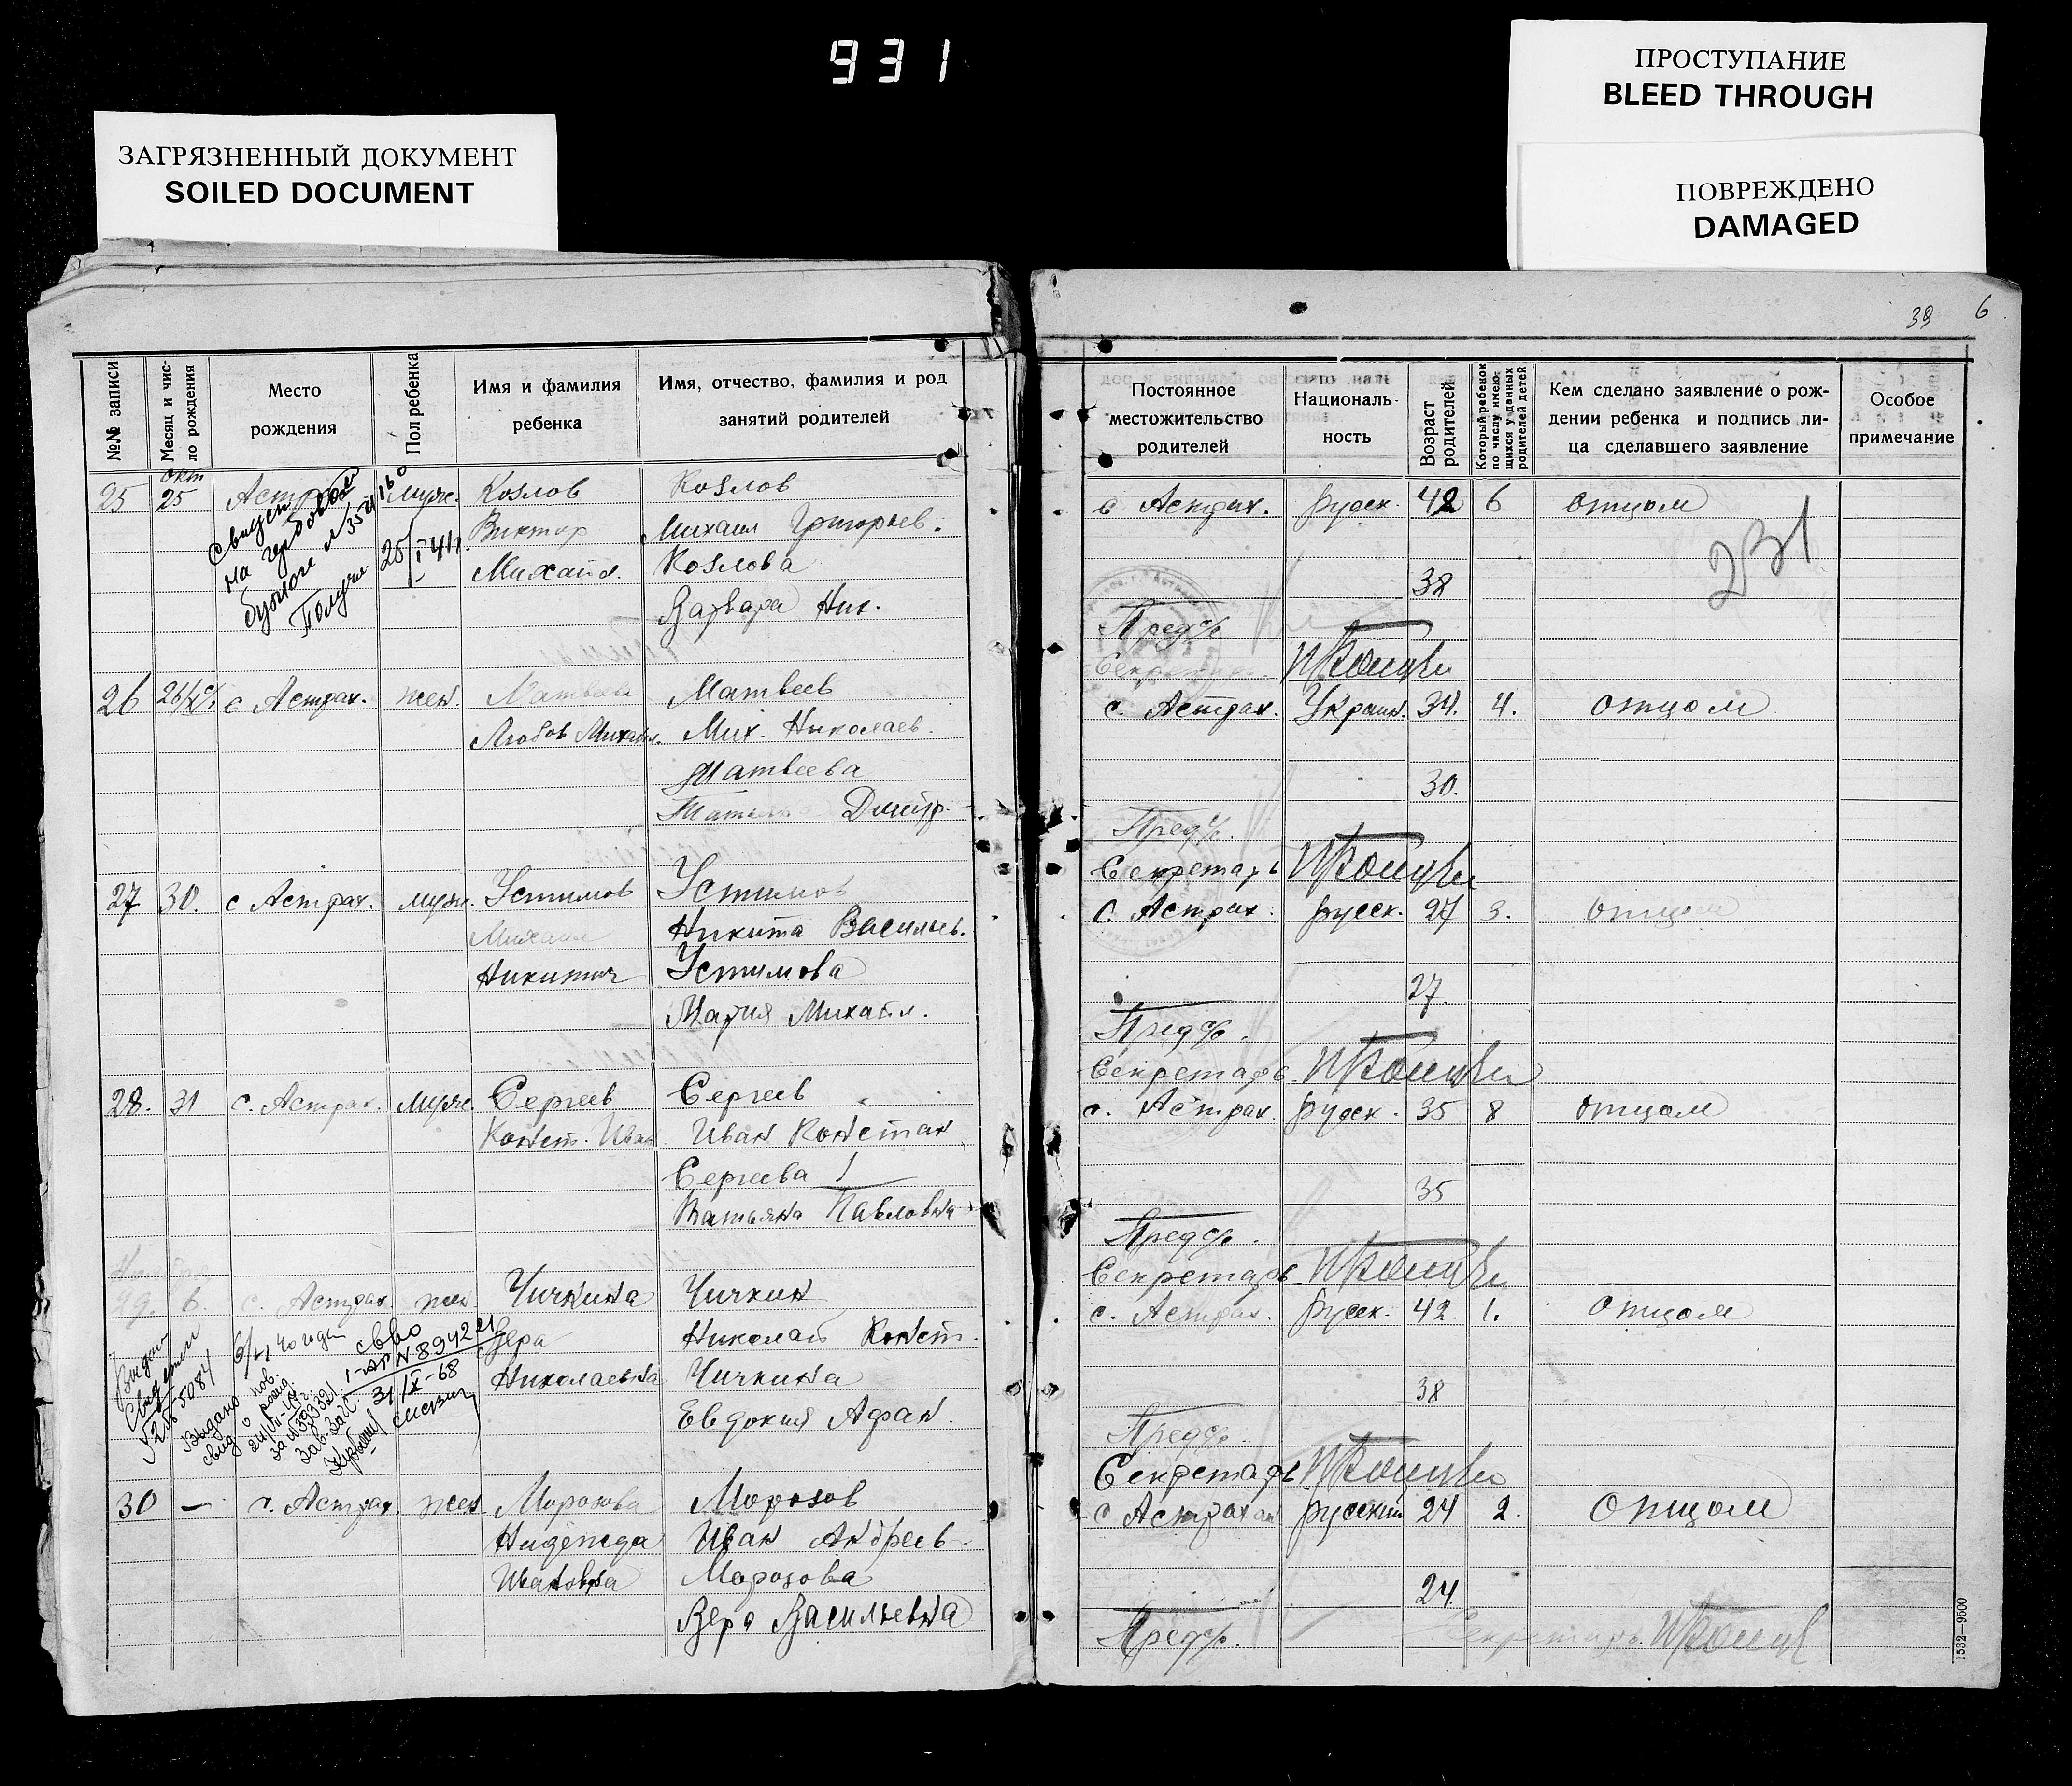 931
ПРОСТУПАНИЕ
BLEED THROUGH
ЗАГРЯЗНЕННЫЙ ДОКУМЕНТ
SOILED DOCUMENT
ПОВРЕЖДЕНО
DAMAGED
39 6
№№ записи
Месяц и чис-
ло рождения
Место
рождения
Пол ребенка
Имя и фамилия
ребенка
Имя, отчество, фамилия и род
занятий родителей
Постоянное
местожительство
родителей
Националь-
ность
Возраст
родителей
Который ребенок
по числу имею-
щихся у данных
родителей детей
Кем сделано заявление о рож-
дении ребенка и подпись ли-
ца сделавшего заявление
Особое
примечание
окт
25 25 Астр муж. Козлов Козлов
Виктор Михаил Григорьев.
Михайл. Козлова
Варвара Ник.
на гербовой
бумаге
Получил
с Астрах. русск. 42 6 отцом
231
38
Предс/с
Секретарь
26 26/X с Астрах. жен. Матвеева Матвеев
Любовь Михайл. Мих. Николаев.
Матвеева
Татьяна Дмитр.
с. Астрах. Украин. 34. 4. отцом
30.
Предс/с.
Секретарь
27 30. с Астрах. муж. Устимов Устимов
Михаил Никита Васильев.
Никитич Устимова
Мария Михайл.
С. Астрах. русск. 27 3. отцом
27.
Предс/с.
Секретарь
28. 31 с. Астрах. муж. Сергеев Сергеев
Конст. Иван Иван Констан
Сергеева
Татьяна Павловна
с. Астрах. русск. 35 8 отцом
35
Предс/с.
Секретарь
Ноябрь
29. 6. с. Астрах. жен. Чичкина Чичкин
Вера Николай Конст.
Николаевна Чичкина
Евдокия Афан.
Выдано
свид. о рожд.
с. Астрах. Русск. 42. 1. отцом
38
Предс/с.
Секретарь
30 — с. Астрах. жен. Морозова Морозов
Надежда Иван Андреев
Ивановна Морозова
Вера Васильевна
с Астрахан русский 24 2. отцом
24
Предс/с. Секретарь
1532—9500